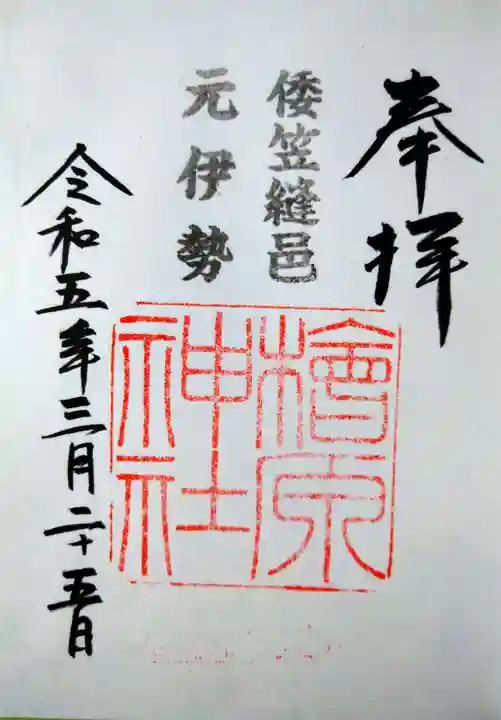 奉拝
倭笠縫邑
元伊勢
檜原神社
令和五年三月二十五日